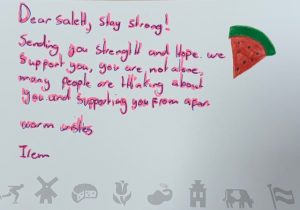 Dear Saleh, stay strong!
Sending you strength and Hope. we
support you, you are not alone,
many people are thinking about
you and supporting you from afar.
warm wishes
Irem